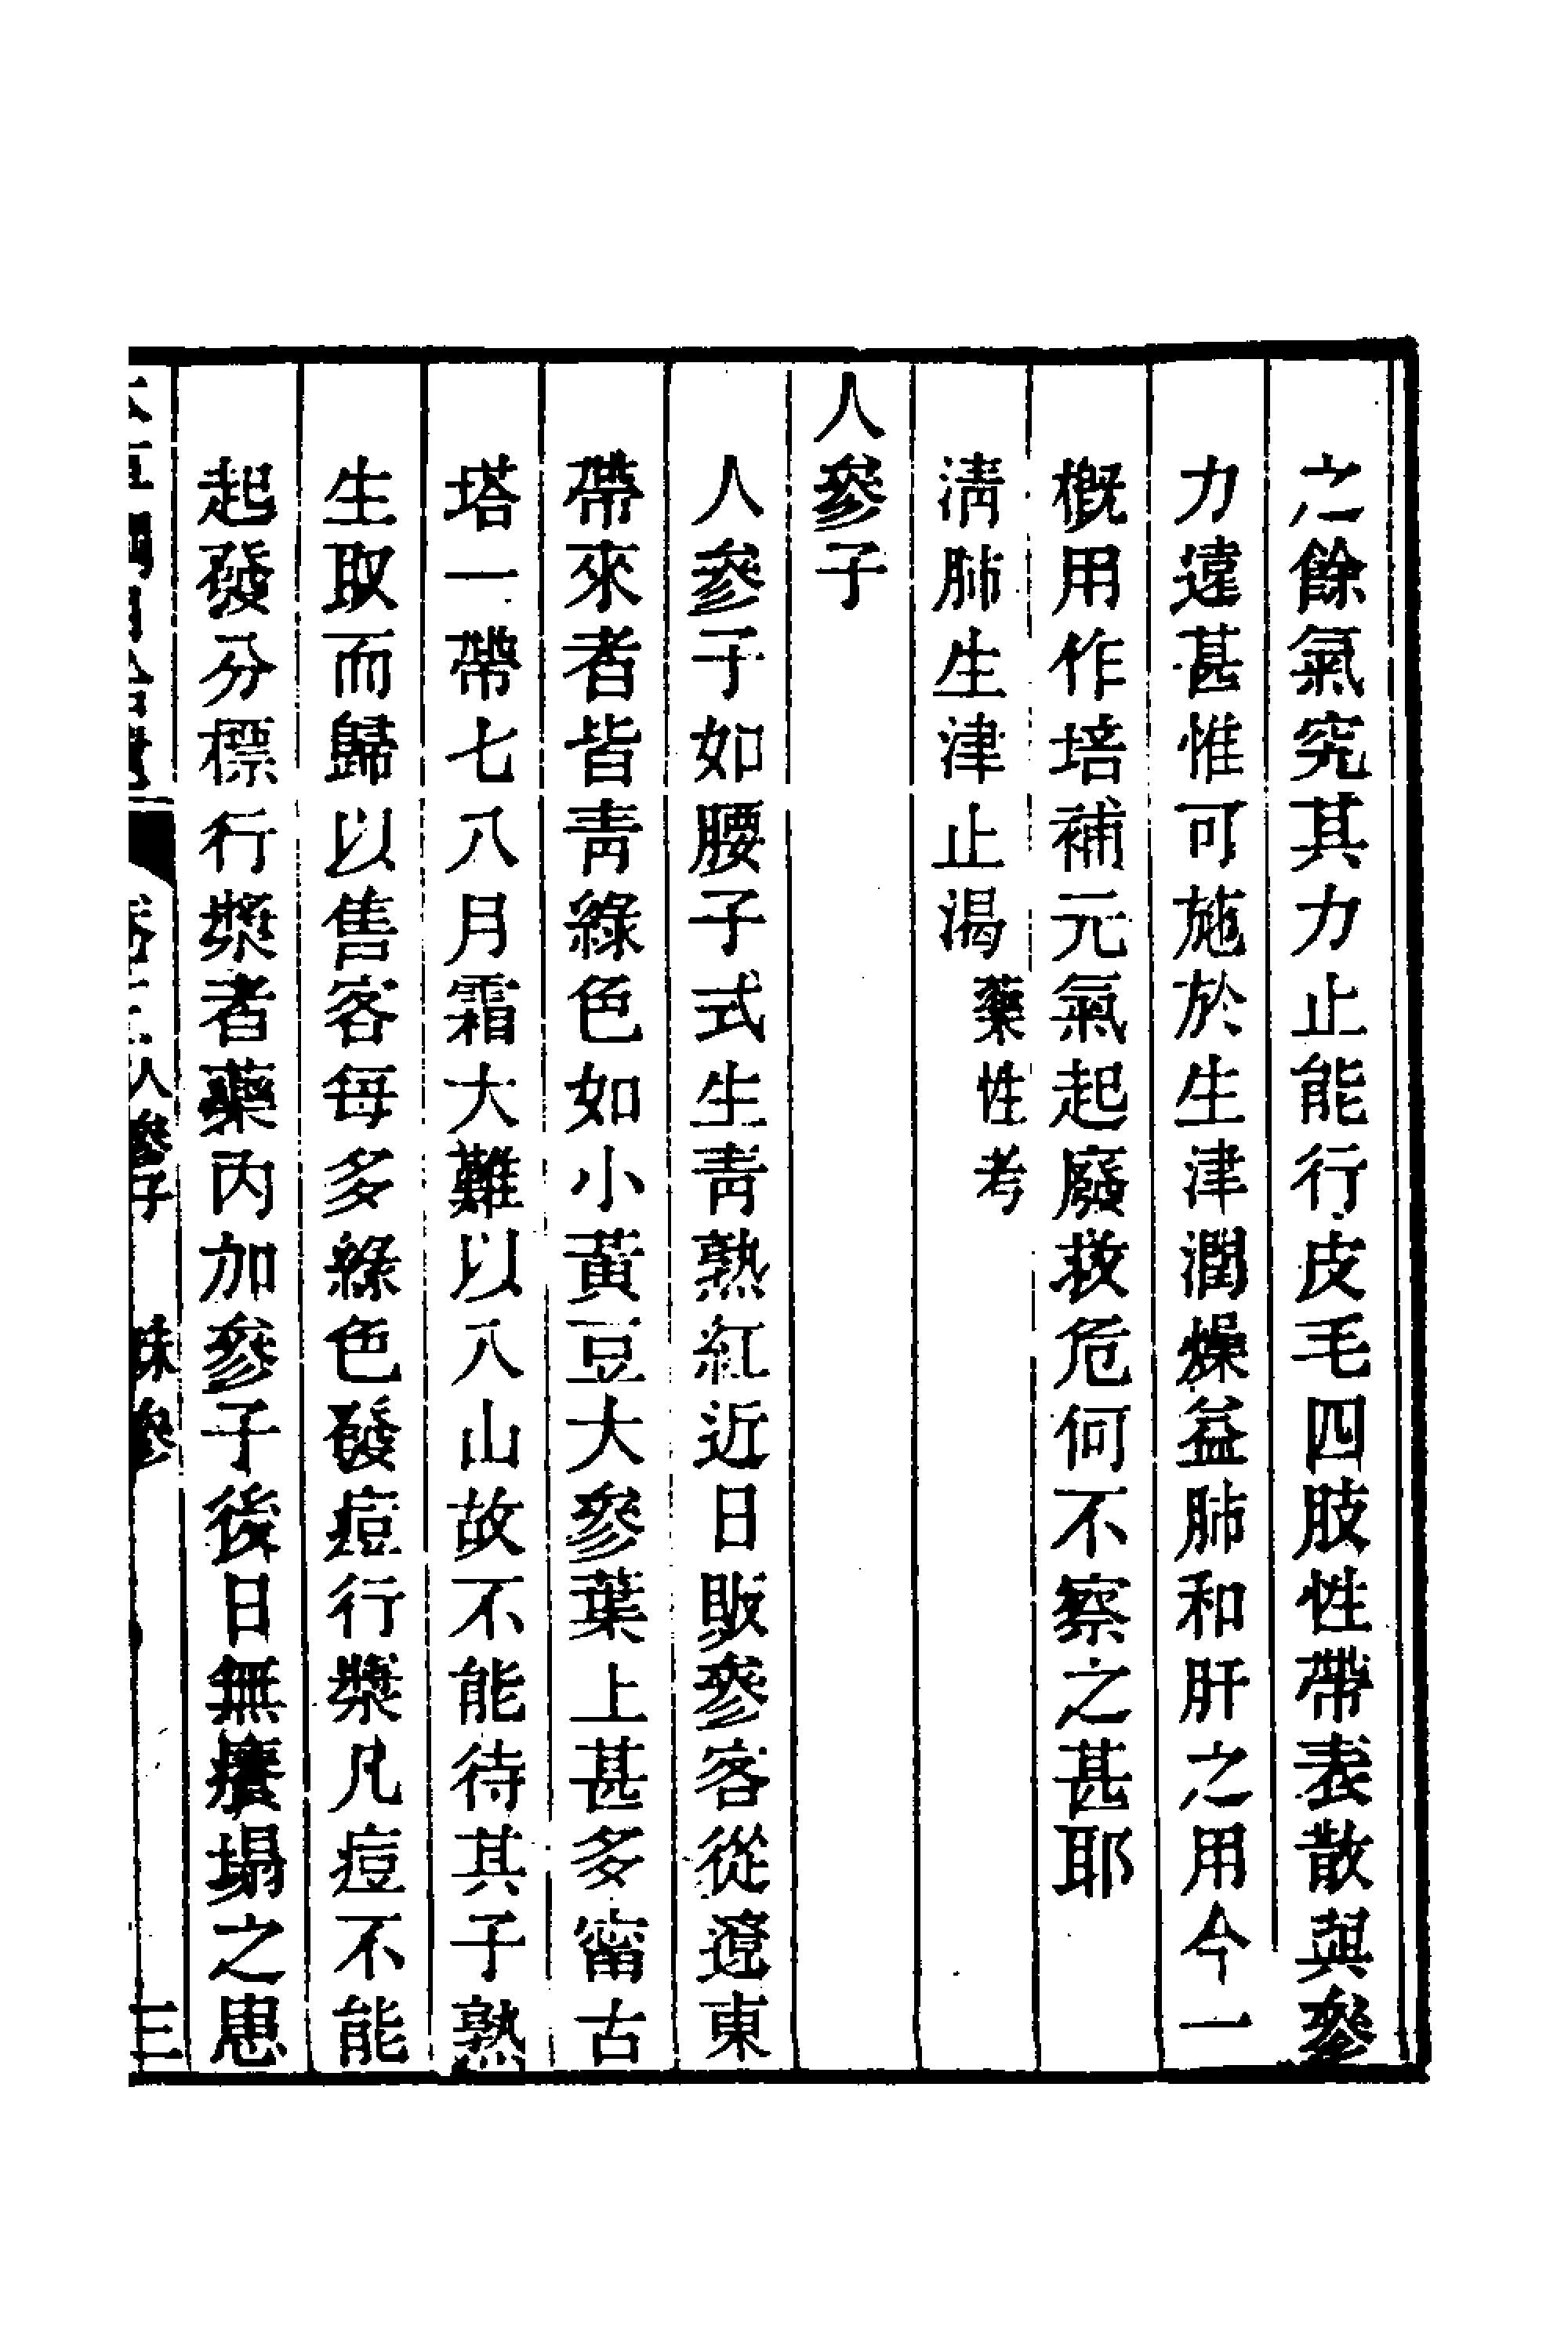 之餘氣究其力止能行皮毛四肢性帶表散與參
力違甚惟可施於生津潤燥益肺和肝之用今一
概用作培補元氣起廢救危何不察之甚耶
淸肺生津止渴藥性考
人參子
人參子如腰子式生靑熟紅近日販參客從遼東
帶來者皆靑綠色如小黃豆大參葉上甚多甯古
塔一帶七八月霜大難以入山故不能待其子熟
生取而歸以售客每多綠色發痘行漿凡痘不能
起發分標行漿者藥內加參子後日無癢塌之患
人參子 珠參 三